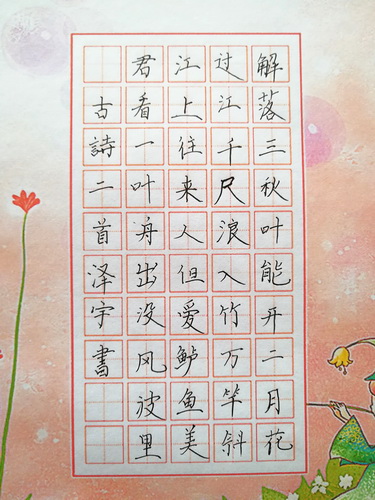 解落三秋叶能开二月花
过江千尺浪入竹万竿斜
江上往来人但愛鲈鱼美
君看一叶舟出没风波里
古詩二首泽宇書